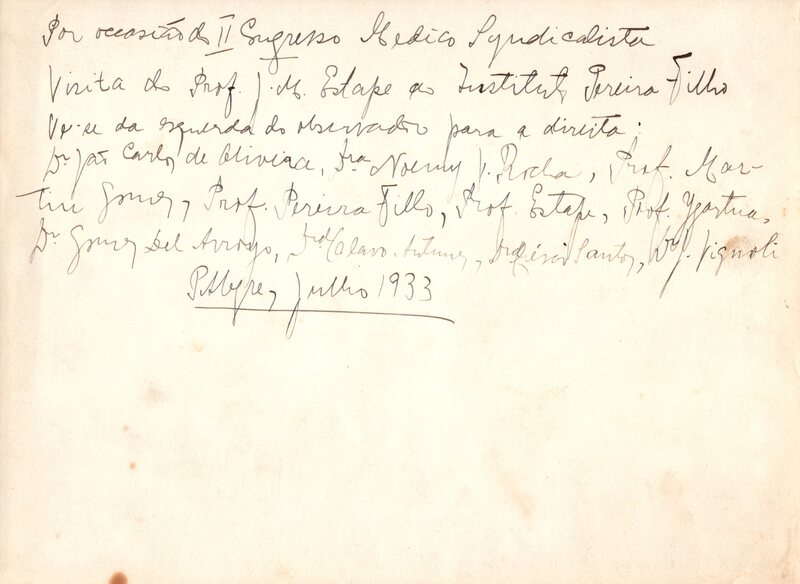 Por occasião do II Congresso Medico Syndicalista
Visita do Prof. J. M. Estape ao Instituto Pereira Filho
Vê-se da esquerda do observador para a direita:
Dr. João Carlos de Oliveira, Dra Noemy V. Rocha, Prof. Mar-
tin Gomes, Prof. Pereira Filho, Prof. Estape, Prof. Ygartua,
Dr. Gomes Del Arroyo, Olavo Antunes, Dr Cesar Santos, Dr. J. Vignoli
P. Alegre, Julho 1933